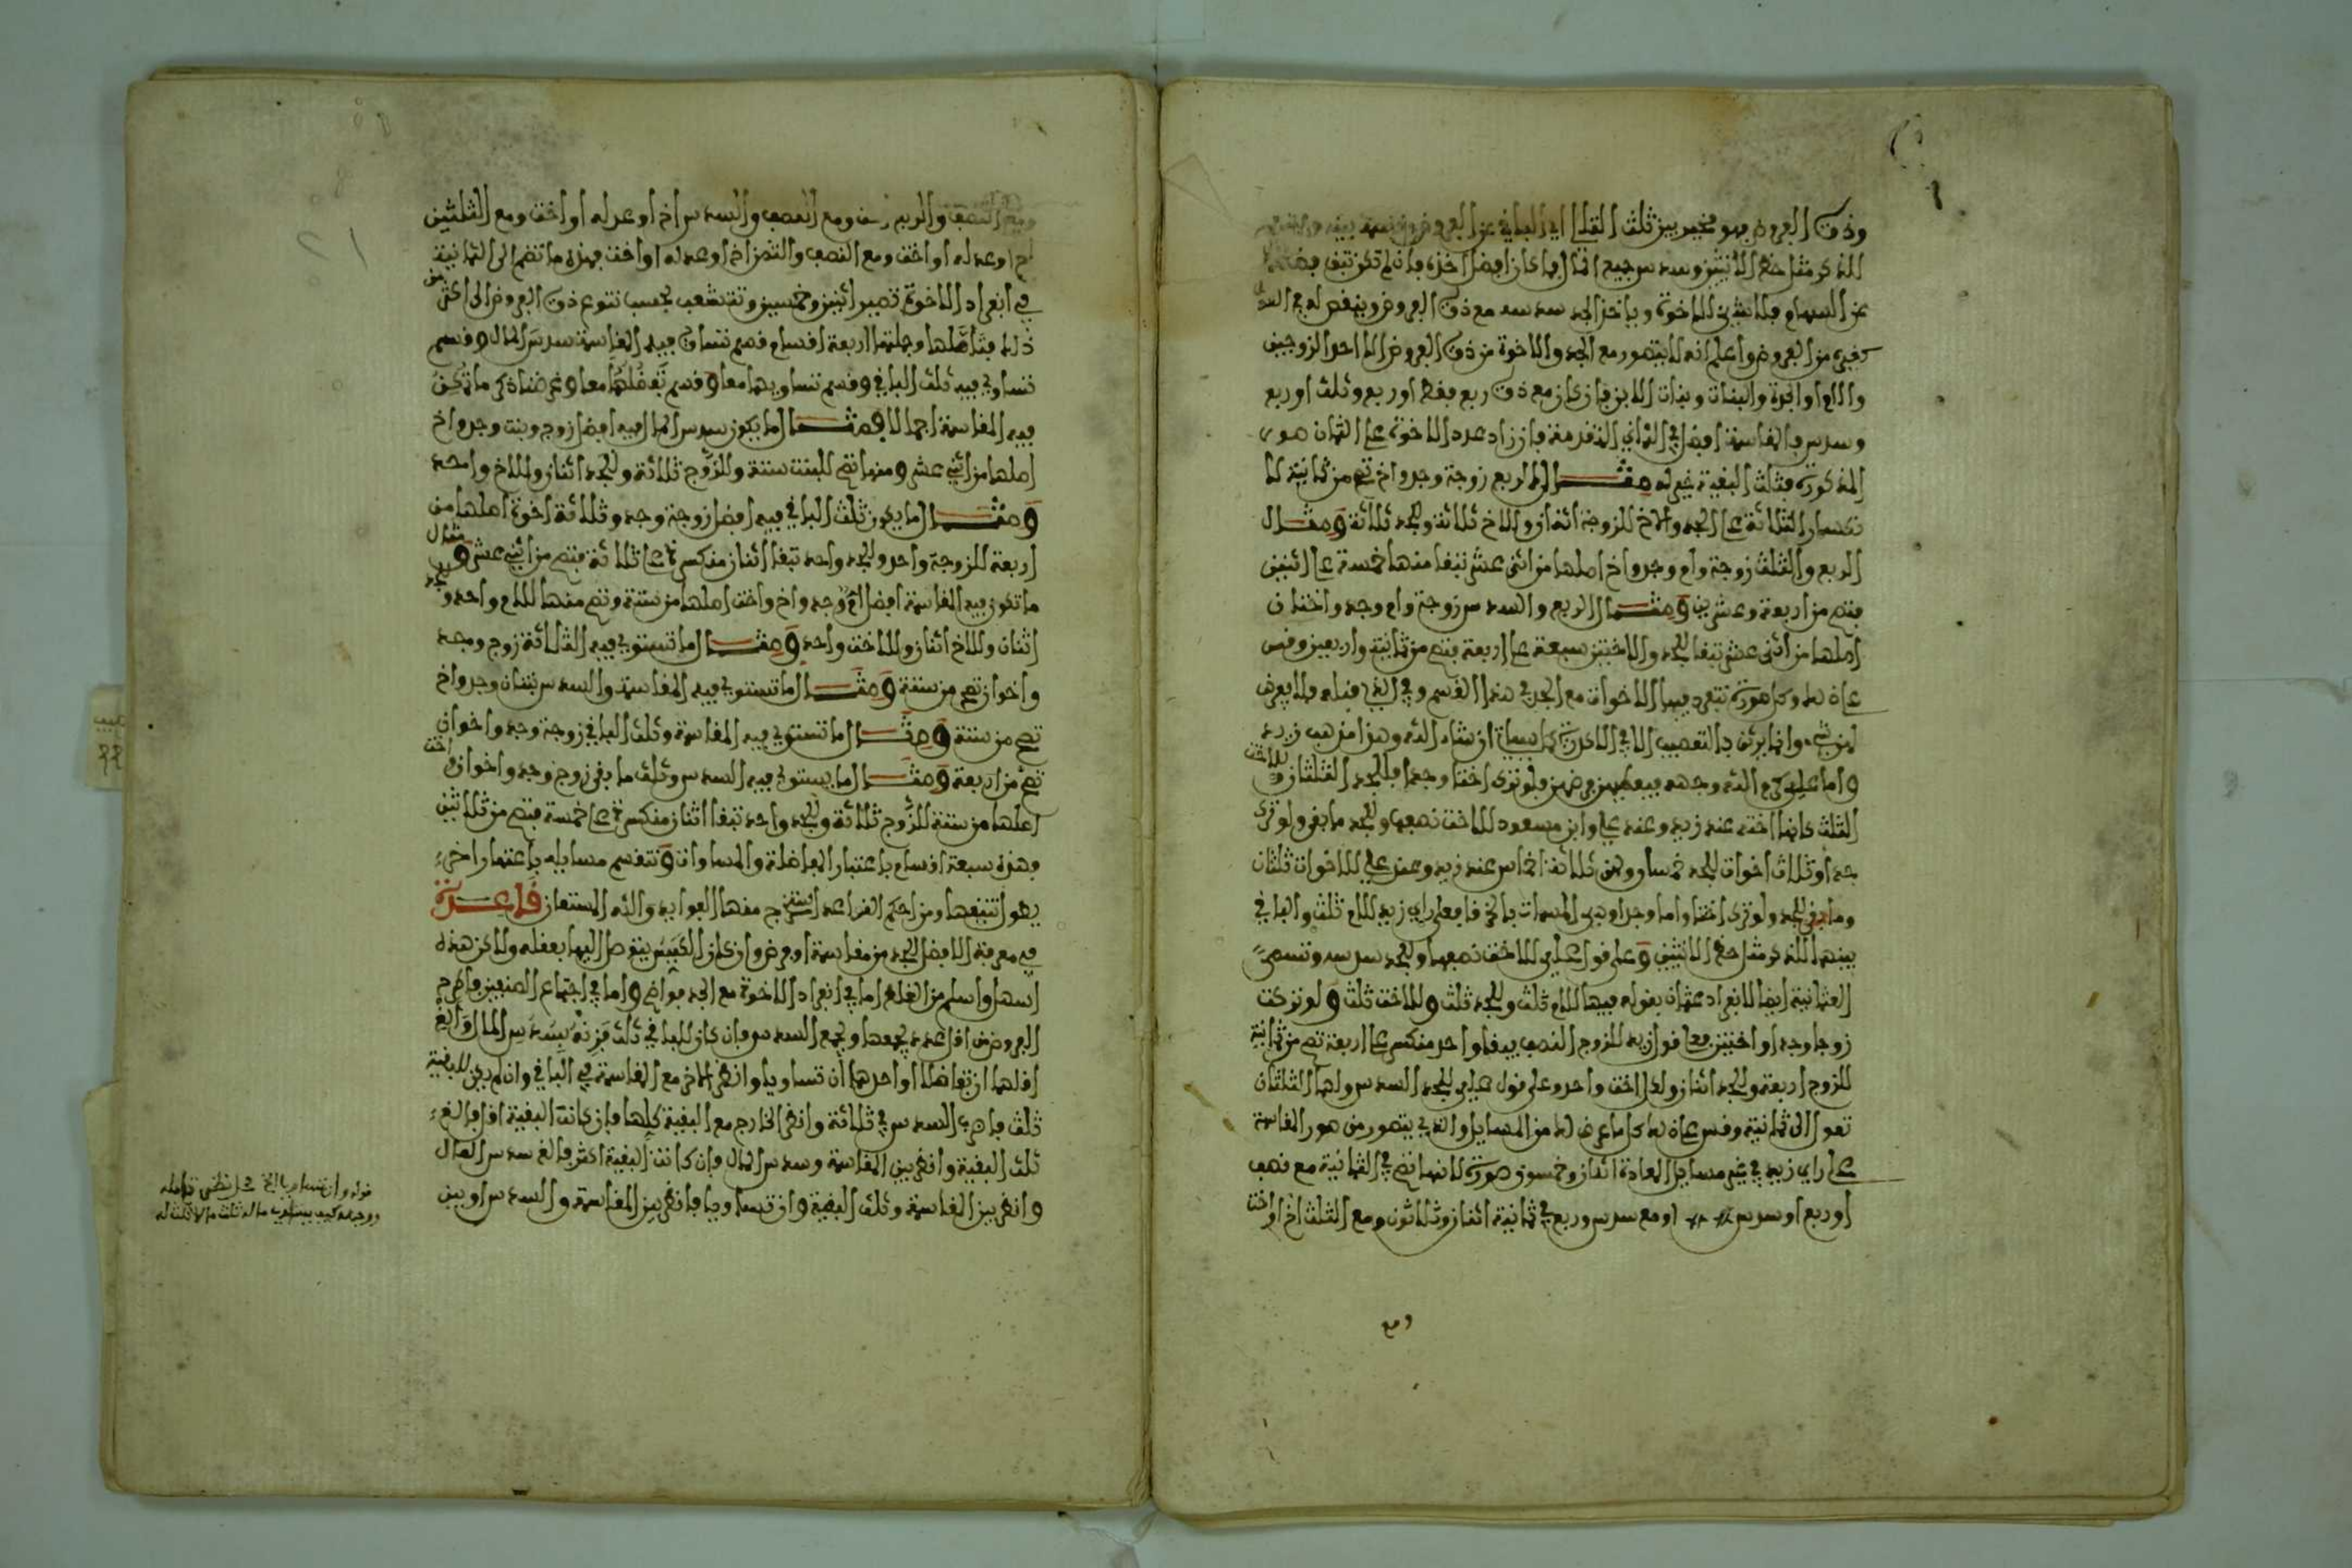 وذوي الفروض فهو مخير بين ثلث القلل اي الباقي عن الفروض وقسمة بينه وبينهم
للذكر مثل حظ الانثيين وسدس جميع المال فما كان افضل اخذه فان لم تكن تبقى
عن السهام فلا شيء للاخوة وياخذ الجد سدسه مع ذوي الفروض وينقص له في السدس
كغيره من الفروض واعلم انه لا يتصور مع الجد والاخوة من ذوي الفروض الا احد الزوجين
والام او الجدة والبنات وبنات الابن فان كان مع ذوي ربع فقط او ربع وثلث او ربع
وسدس فالمقاسمة افضل في الثماني المتقدمة فان زاد عدد الاخوة على الثمان صور
المذكورة فثلث البقية خير له مثال الربع زوجة وجد واخ تصح من ثمانية لا
نكسار الثلاثة على الجد والاخ للزوجة اثنان وللاخ ثلاثة وللجد ثلاثة ومثال
الربع والثلث زوجة وام وجد واخ اصلها من اثنى عشر تبقا منها خمسة على اثنين
فتصح من اربعة وعشرين ومثال الربع والسدس زوجة وام وجد واختان
اصلها من اثنى عشر تبقا للجد والاختين سبعة على اربعة فتصح من ثمانية واربعين وقس
على هذا وكل صورة تتعدد فيها الاخوات مع الجد في هذا القسم وفي الذي قبله فلا يفرض
لهن شيء وانما يرثن بالتعصيب الا في الاكدرية كما سياتي ان شاء الله وهذا مذهب زيد
واما علي كرم الله وجهه فيعطيهن فرضهن فلو ترك اختا وجدا فللجد الثلثان وللاخت
الثلث كانها اخته عند زيد وعند علي وابن مسعود للاخت نصفها وللجد ما بقي ولو ترك
جدا وثلاث اخوات للجد خمسان ولهن ثلاثة اخماس عند زيد وعند علي للاخوات ثلثان
وما بقي للجد ولو ترك اختا واما وجدا وهي المسمات بالخرقا فعلى راي زيد للام ثلث والباقي
بينهما للذكر مثل حظ الانثيين وعلى قول علي للاخت نصفها وللجد سدسه وتسمى
العثمانية ايضا لانفراد عثمان بقوله فيها للام ثلث وللجد ثلث وللاخت ثلث ولو تركت
زوجا وجدا واختين فعلى قول زيد للزوج النصف يبقا واحد منكسر على اربعة تصح من ثمانية
للزوج اربعة وللجد اثنان ولكل اخت واحد وعلى قول علي للجد السدس ولهما الثلثان
تعول الى ثمانية وقس على هذا كل ما عرض لك من المسايل والذي يتصور من صور المقاسمة
على راي زيد في غير مسايل المعادة اثنان وخمسون صورة لانها تصح في الثمانية مع نصف
او ربع او سدس او مع سدس وربع في ثمانية اثنان وثلاثون ومع الثلث اخ او اخت
ومع
ومع النصف والربع ومع النصف والسدس اخ او عدله او اخت ومع الثلثين
اخ او عدله او اخت ومع النصف والثمن اخ او عدله او اخت فهذه ما تضم الى الثمانية
في انفراد الاخوة تصير اثنين وخمسين وتتشعب بحسب تنوع ذوي الفروض الى اكثر من
ذلك فتاملها وجملتها اربعة اقسام قسم تساوي فيه المقاسمة سدس المال وقسم
تساوي فيه ثلث الباقي وقسم تساويهما معا وقسم تفضلهما معا وغرضنا ذكر ما تمكن
فيه المقاسمة اجمالا فمثال ما يكون سدس المال فيه افضل زوج وبنت وجد واخ
اصلها من اثنى عشر ومنها تصح للبنت ستة وللزوج ثلاثة وللجد اثنان وللاخ واحد
ومثال ما يكون ثلث الباقي فيه افضل زوجة وجد وثلاثة اخوة اصلها من
اربعة للزوجة واحد وللجد واحد تبقا اثنان منكسرة على ثلاثة فتصح من اثنى عشر ومثال
ما تكون فيه المقاسمة افضل ام وجد واخ واخت اصلها من ستة وتصح منها للام واحد وللجد
اثنان وللاخ اثنان وللاخت واحد ومثال ما تستوي فيه الثلاثة زوج وجد
واخوان تصح من ستة ومثال ما تستوي فيه المقاسمة والسدس بنتان وجد واخ
تصح من ستة ومثال ما تستوي فيه المقاسمة وثلث الباقي زوجة وجد واخوان
تصح من اربعة ومثال ما يستوي فيه السدس وثلث ما بقي زوج وجد واخوان واخت
اصلها من ستة للزوج ثلاثة وللجد واحد تبقا اثنان منكسرة على خمسة فتصح من ثلاثين
فهذه سبعة اقسام باعتبار المفاضلة والمساوات وتنقسم مسايله باعتبار اخر
يطول تتبعها ومن احكم القواعد استخرج منها الفوايد والله المستعان قاعدة
في معرفة الافضل للجد من مقاسمة او فرض وان كان الكيس يتوصل اليها بعقله ولاكن هذه
اسهل واسلم من الغلط اما في انفراد الاخوة مع الجد فواضح واما في اجتماع الصنفين فاخرج
الفروض من اقل عدد يجمعها ويجمع السدس فان كان للباقي ثلث فزنه بسدس المال والغ
اقلهما ان تفاضلا او احدهما ان تساويا وانظر الاخر مع المقاسمة في الباقي وان لم يكن للبقية
ثلث فاضرب السدس في ثلاثة وانظر الخارج مع البقية كلها فان كانت البقية اقل فالغ
ثلث البقية وانظر بين المقاسمة وسدس المال وان كانت البقية اكثر فالغ سدس المال
وانظر بين المقاسمة وثلث البقية وان تساويا فانظر بين المقاسمة والسدس او بين
قوله وان تساويا الخ